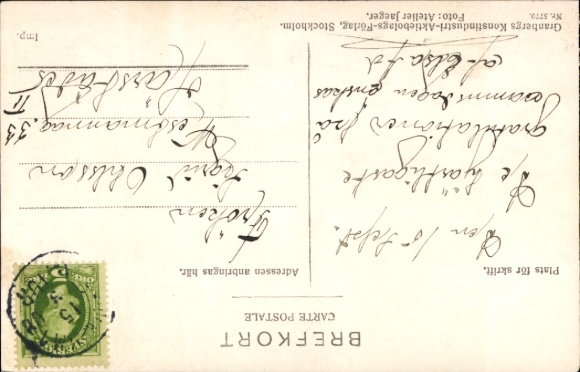 BREFKORT
CARTE POSTALE
Plats för skrift.
Adressen anbringas här.
Den 15 Sept.
De hjärtligaste
gratulationer på
namnsdagen önskas
af Elsa
Fröken
Sigrid Ohlsson
33
Imp.
Granbergs Konstindustri-Aktiebolags-Förlag, Stockholm.
Nr. 5779. Foto: Atelier Jaeger.